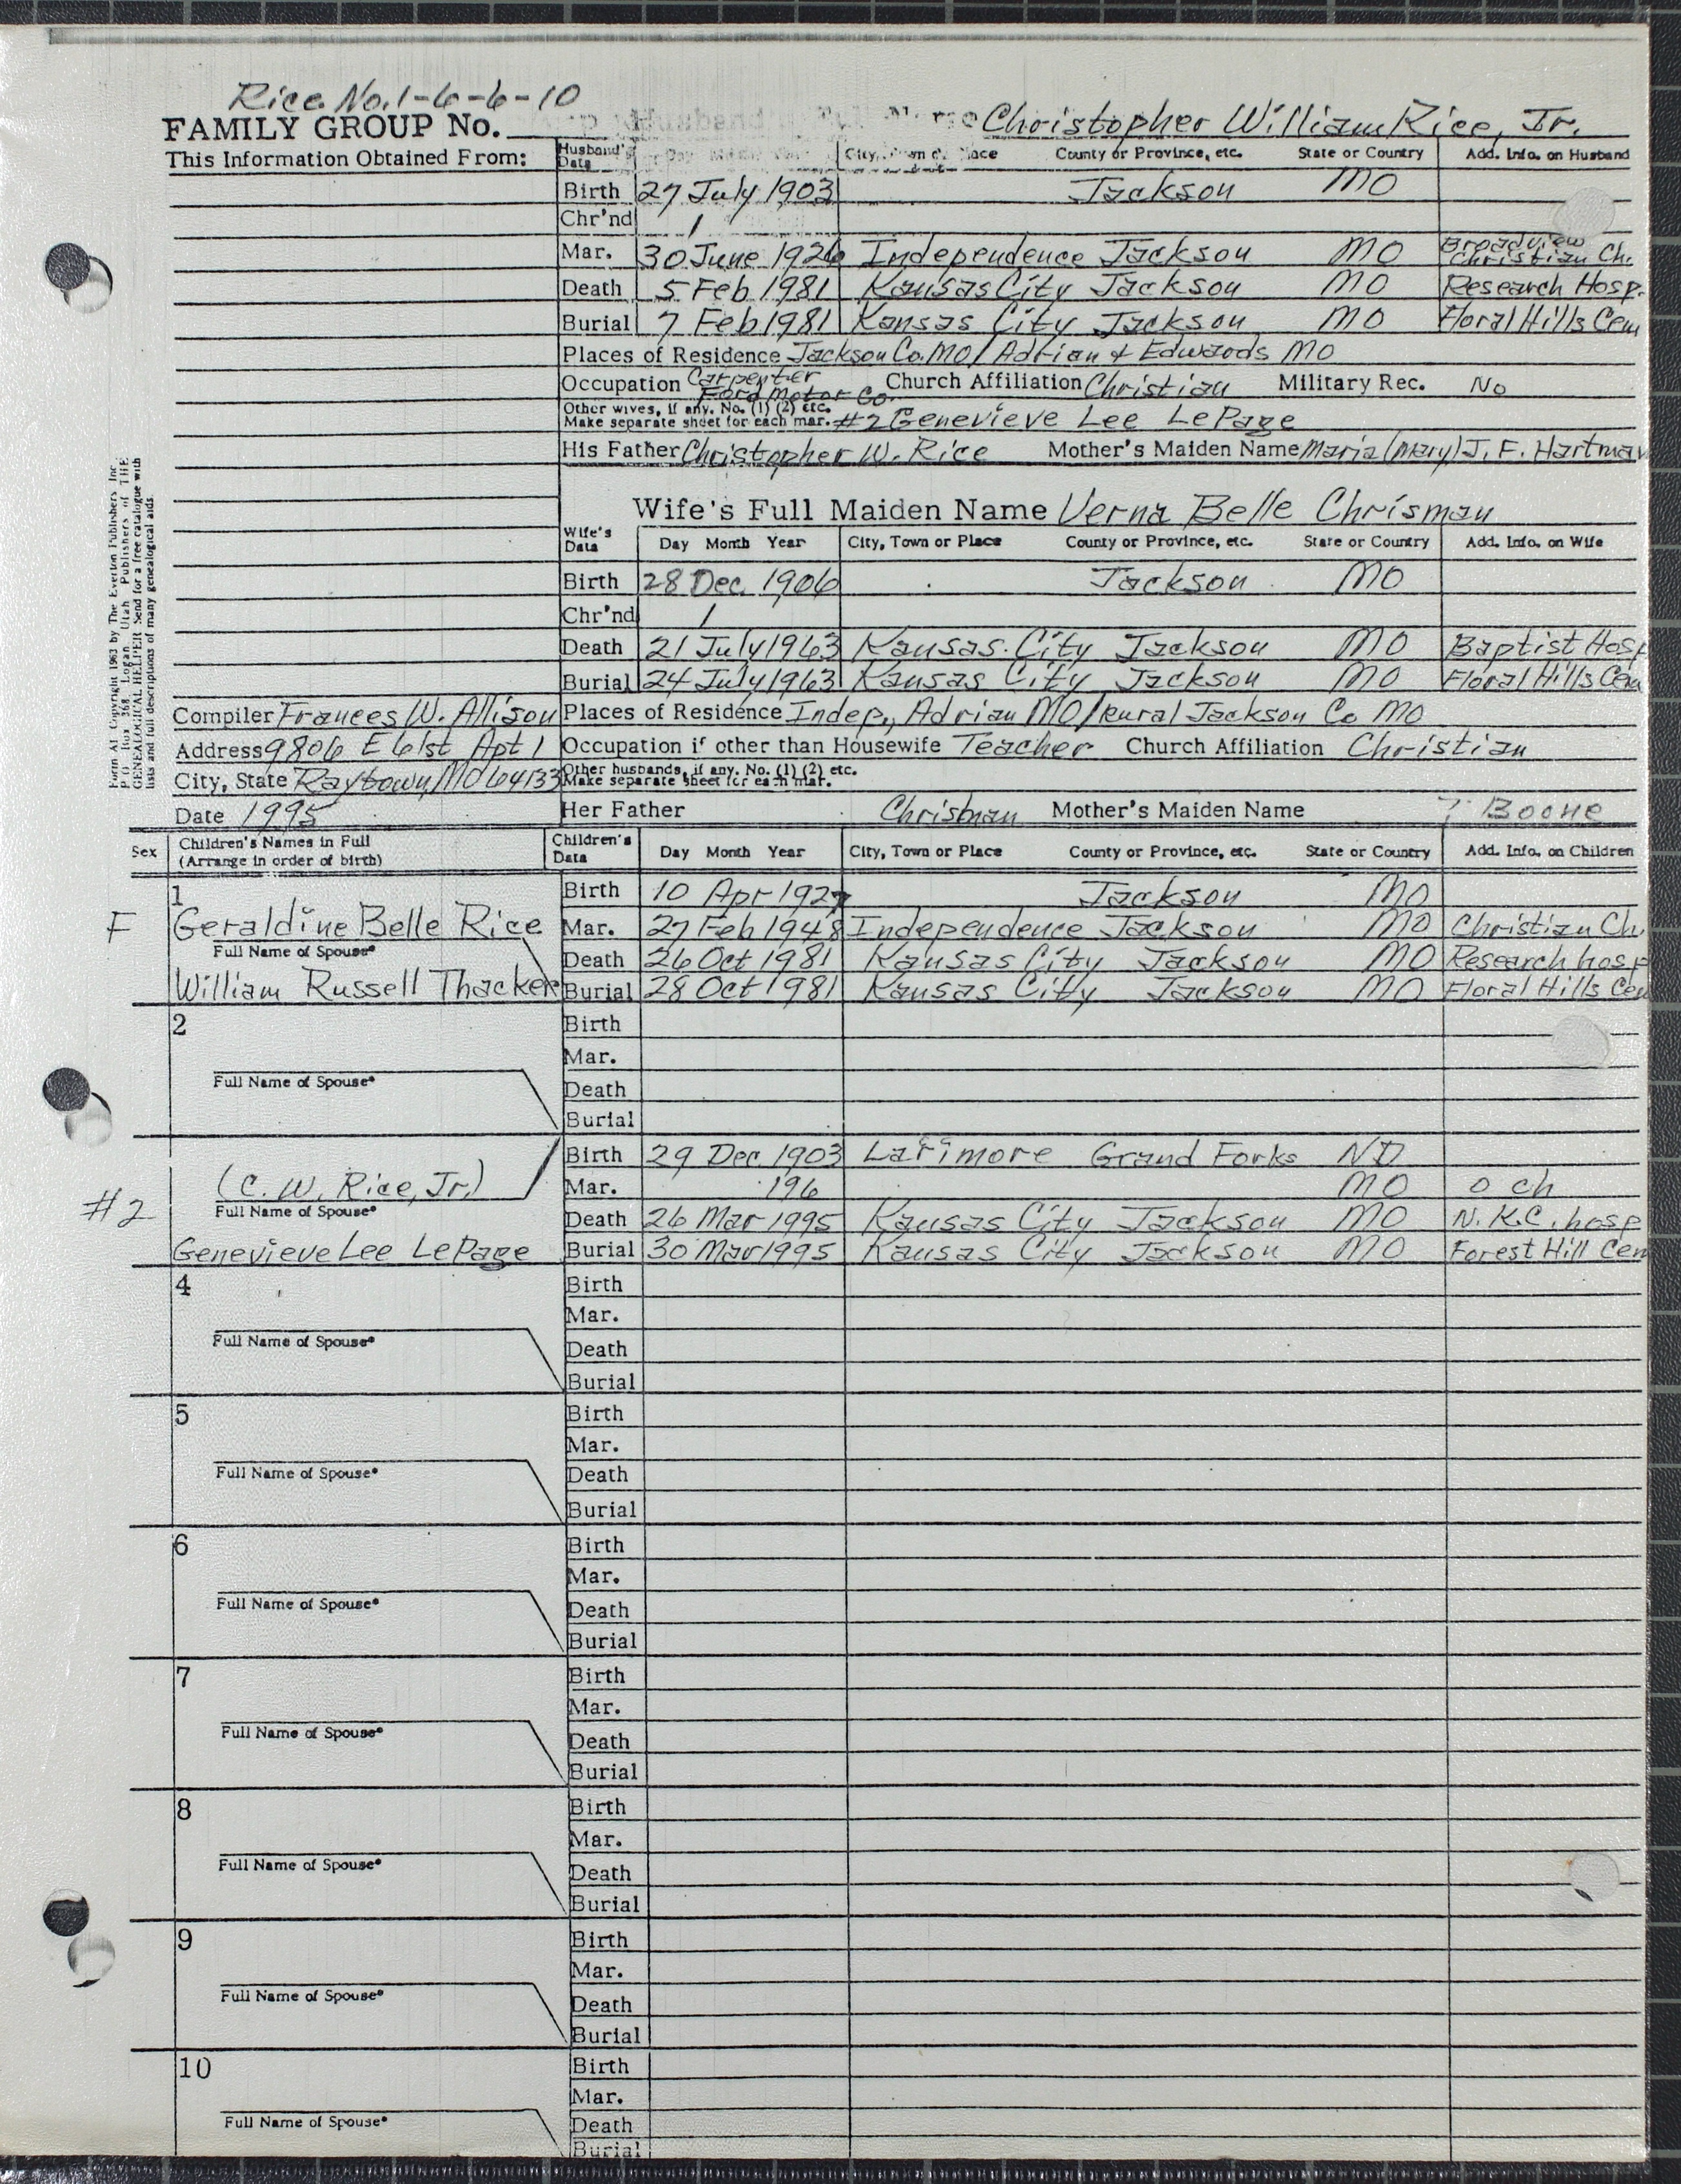 Rice No. 1-6-6-10
FAMILY GROUP No. Husband's Full Name Christopher William Rice, Jr.
This Information Obtained From:
Husband's Data Day Month Year City, Town or Place County or Province, etc. State or Country Add. Info. on Husband
Birth 27 July 1903 Jackson MO
Chr'nd /
Mar. 30 June 1926 Independence Jackson MO Broadview Christian Ch.
Death 5 Feb 1981 Kansas City Jackson MO Research Hosp.
Burial 7 Feb 1981 Kansas City Jackson MO Floral Hills Cem
Places of Residence Jackson Co. MO / Adrian & Edwards MO
Occupation Carpenter Ford Motor Co. Church Affiliation Christian Military Rec. No
Other wives, if any. No. (1) (2) etc.
Make separate sheet for each mar. #2 Genevieve Lee LePage
His Father Christopher W. Rice Mother's Maiden Name Maria (Mary) J. F. Hartman
Wife's Full Maiden Name Verna Belle Chrisman
Wife's Data Day Month Year City, Town or Place County or Province, etc. State or Country Add. Info. on Wife
Birth 28 Dec. 1906 Jackson MO
Chr'nd /
Death 21 July 1963 Kansas City Jackson MO Baptist Hosp
Burial 24 July 1963 Kansas City Jackson MO Floral Hills Cem
Compiler Frances W. Allison Places of Residence Indep., Adrian MO / Rural Jackson Co MO
Address 9806 E 61st Apt 1 Occupation if other than Housewife Teacher Church Affiliation Christian
City, State Raytown, MO 64133 Other husbands, if any. No. (1) (2) etc.
Make separate sheet for each mar.
Date 1995 Her Father Chrisman Mother's Maiden Name ? Boone
Form A1 Copyright 1963 by The Everton Publishers Inc.
P O Box 368 Logan Utah Publishers of THE
GENEALOGICAL HELPER Send for a free catalogue with
lists and full descriptions of many genealogical aids.
Sex Children's Names in Full (Arrange in order of birth) Children's Data Day Month Year City, Town or Place County or Province, etc. State or Country Add. Info. on Children
1 Birth 10 Apr 1927 Jackson MO
F Geraldine Belle Rice Mar. 27 Feb 1948 Independence Jackson MO Christian Ch.
Full Name of Spouse* Death 26 Oct 1981 Kansas City Jackson MO Research hosp
William Russell Thacker Burial 28 Oct 1981 Kansas City Jackson MO Floral Hills Cem
2 Birth
Mar.
Full Name of Spouse* Death
Burial
Birth 29 Dec. 1903 Larimore Grand Forks ND
(C. W. Rice, Jr.) Mar. 196 MO o ch
#2 Full Name of Spouse* Death 26 Mar 1995 Kansas City Jackson MO N.K.C. hosp
Genevieve Lee LePage Burial 30 Mar 1995 Kansas City Jackson MO Forest Hill Cem
4 Birth
Mar.
Full Name of Spouse* Death
Burial
5 Birth
Mar.
Full Name of Spouse* Death
Burial
6 Birth
Mar.
Full Name of Spouse* Death
Burial
7 Birth
Mar.
Full Name of Spouse* Death
Burial
8 Birth
Mar.
Full Name of Spouse* Death
Burial
9 Birth
Mar.
Full Name of Spouse* Death
Burial
10 Birth
Mar.
Full Name of Spouse* Death
Burial